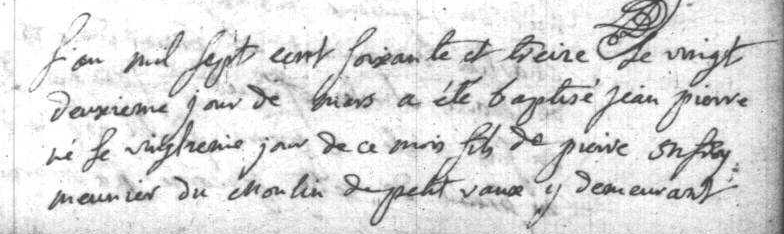 L'an mil sept cent soixante et treize le vingt
deuxieme jour de mars a été baptisé jean pierre
né le vingtieme jour de ce mois fils de pierre
meunier du moulin de petit vaux y demeurant